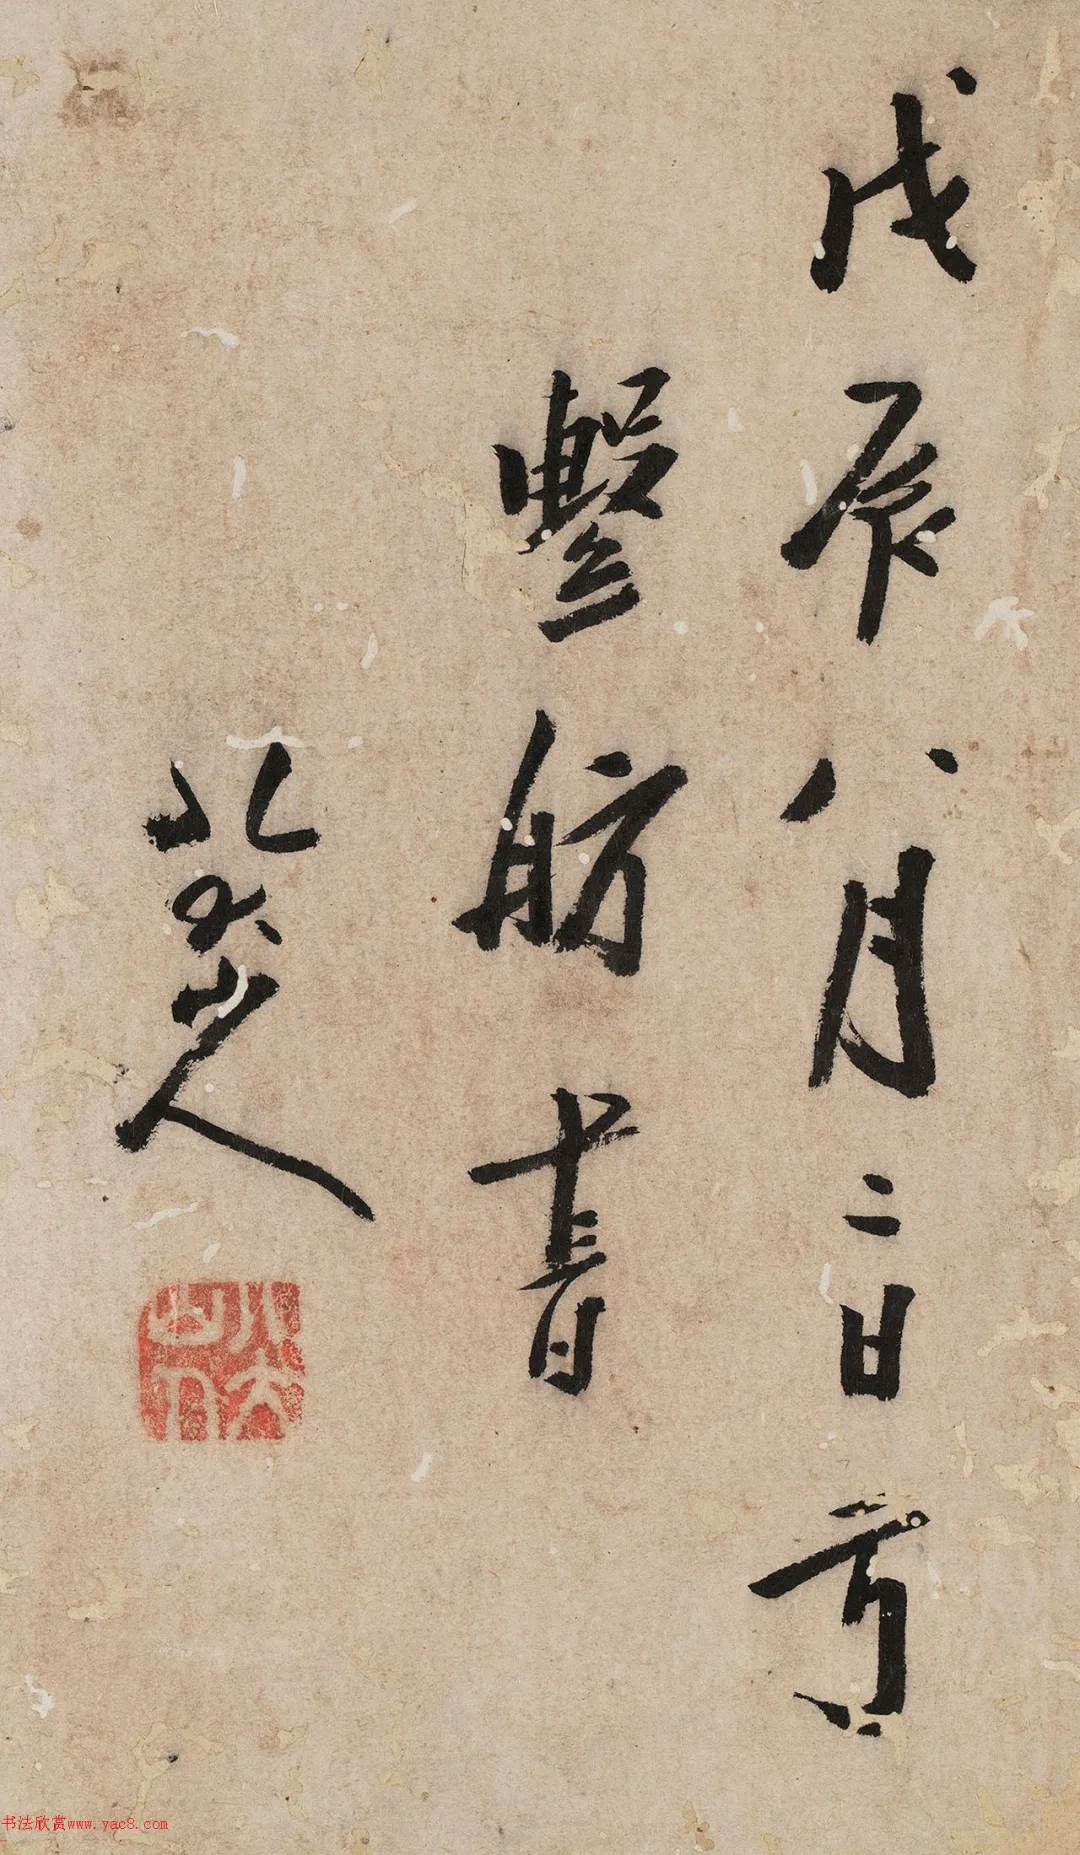 戊辰八月二日
繫舫書
八大山人
八大山人
书法欣赏www.yac8.com